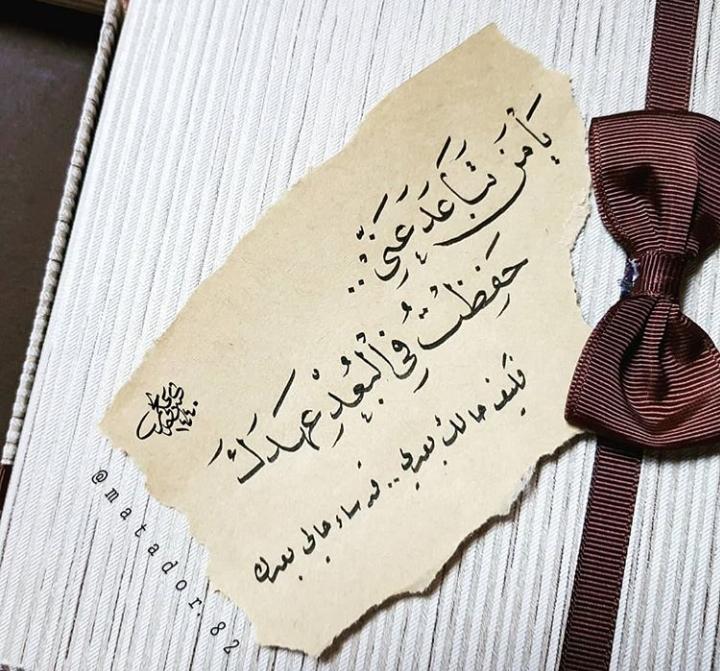 يَا مَنْ تَبَاعَدَ عَنِّي..
حَفِظْتُ فِي الْبُعْدِ عَهْدَكَ
فكيف حالك بعدي.. قد ساء حالي بعدك
@matador.82